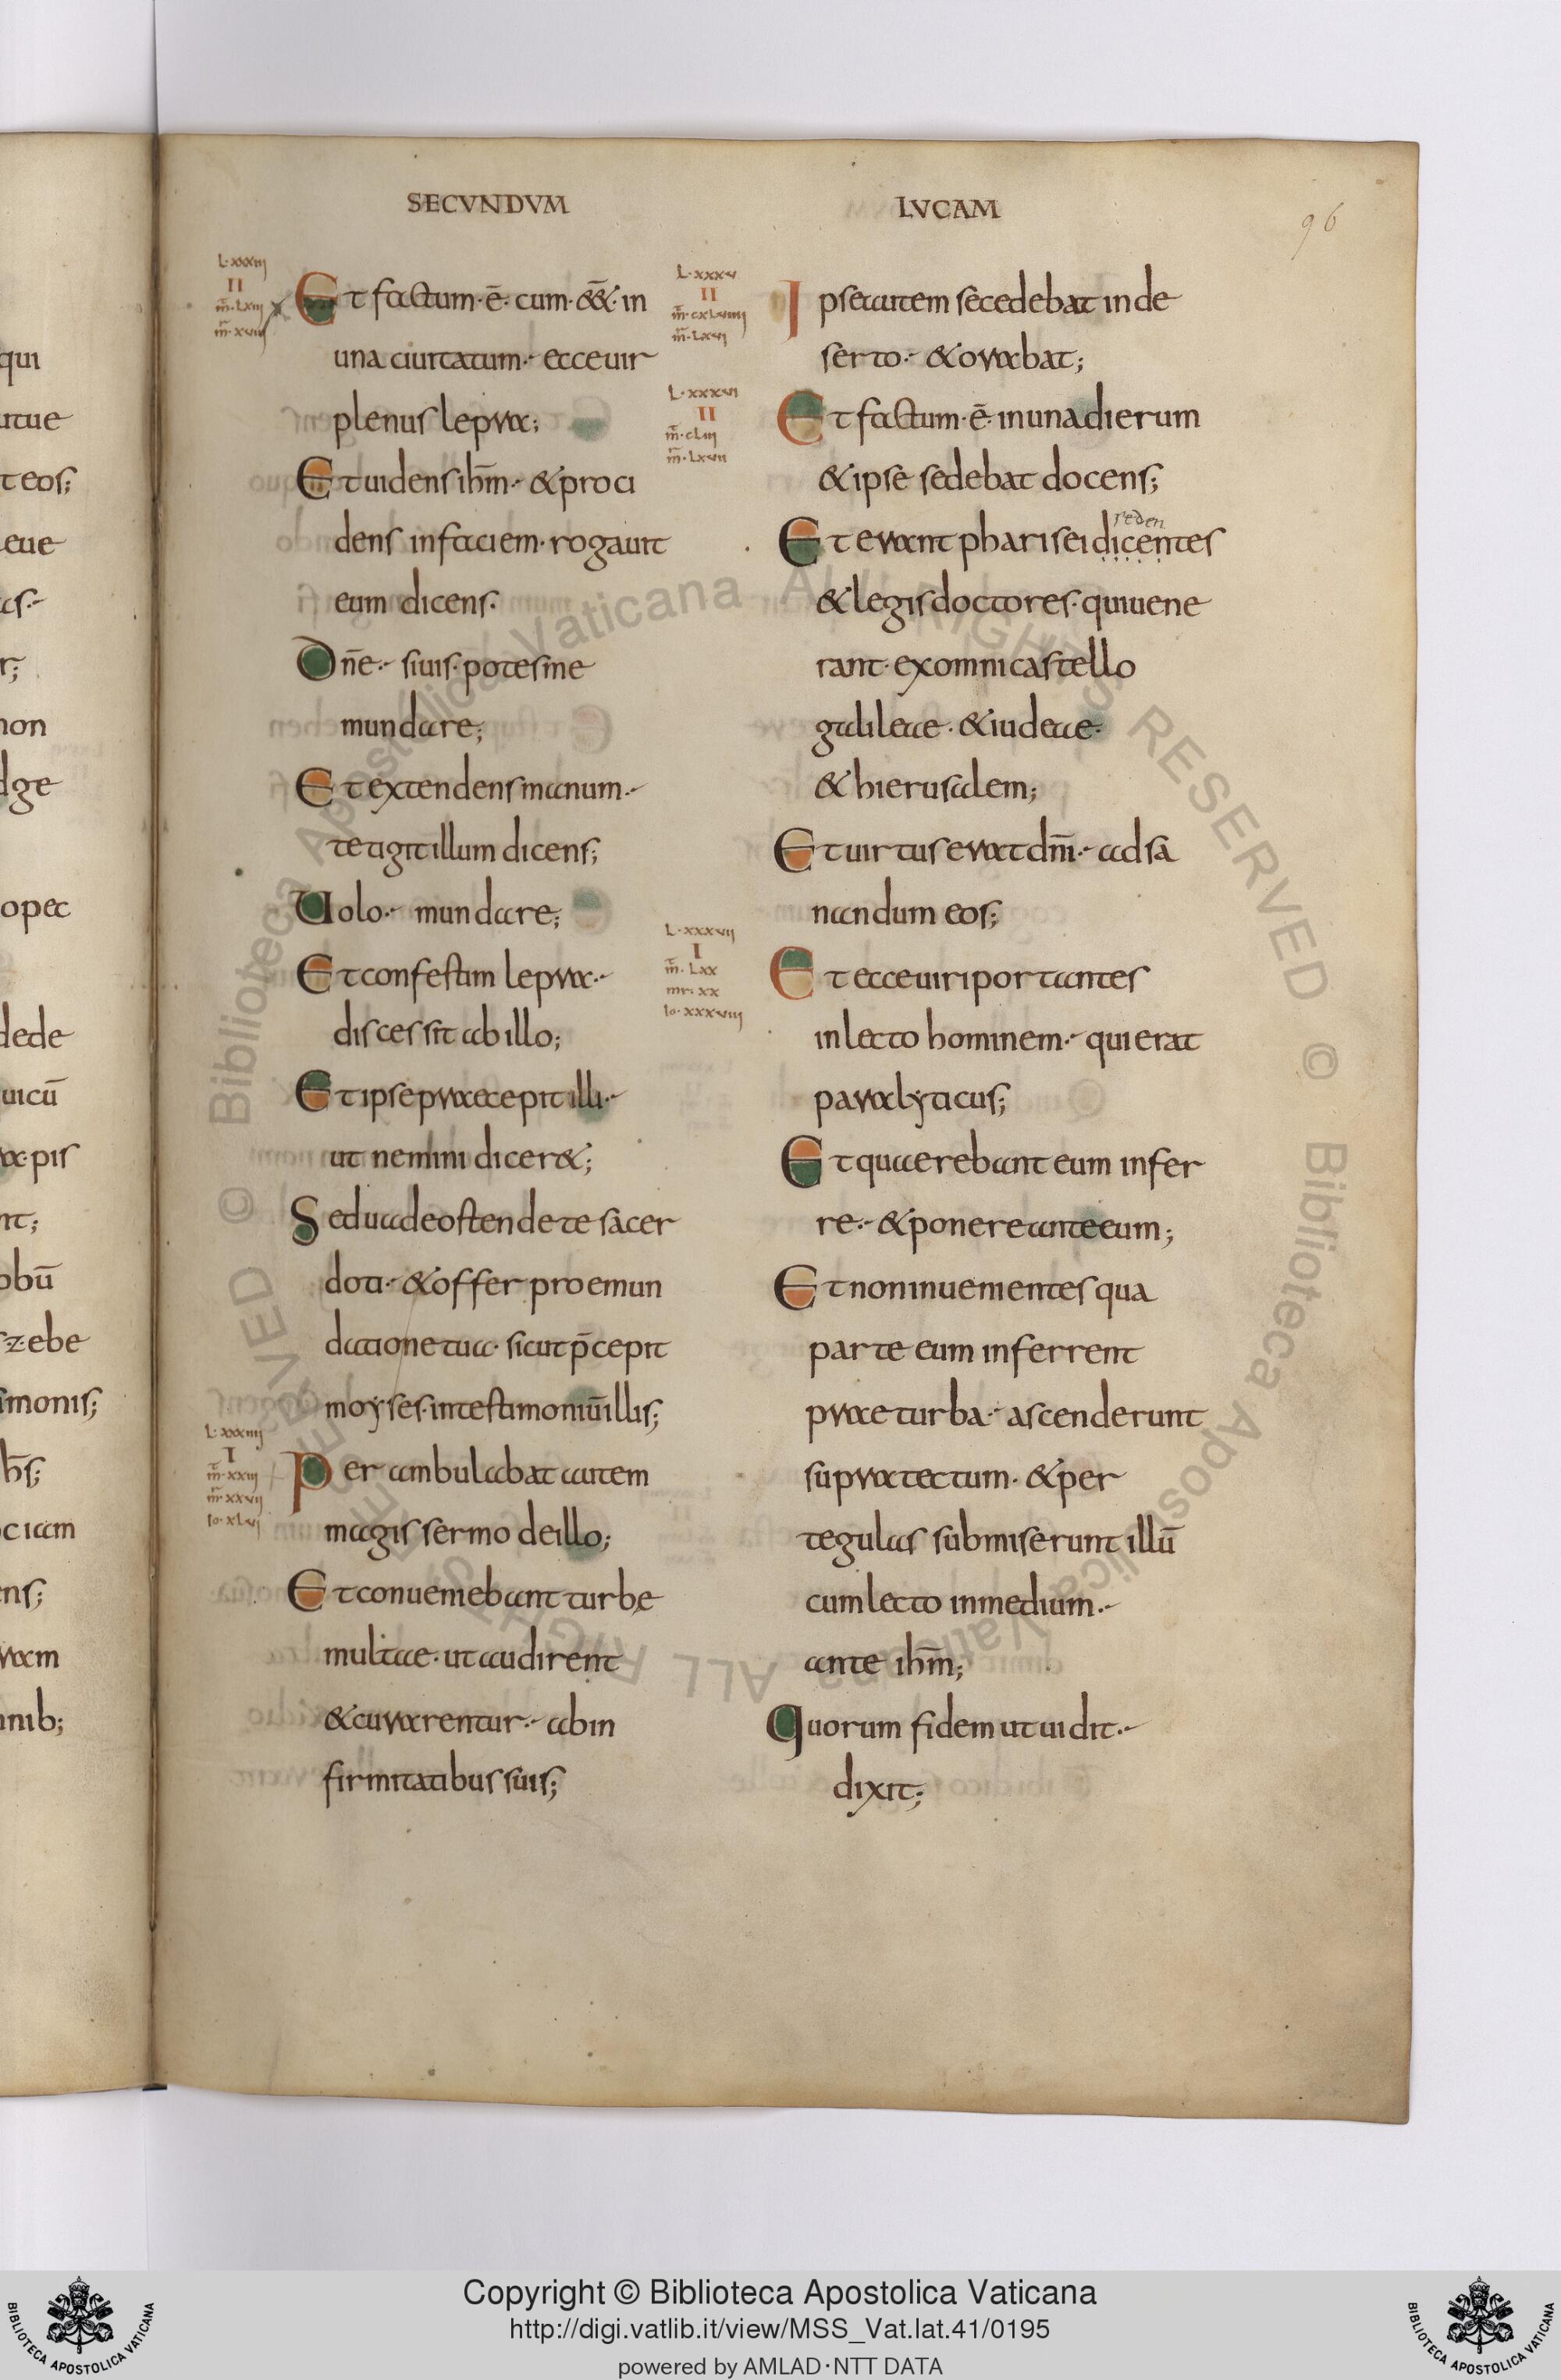 SECVNDVM
L·xxxiii
II
m̄·Lxiii
m̄r·xviii
Et factum·ē·cum·&&·in
una ciuitatum·ecce uir
plenus lepra;
Et uidens ihm̄·& proci
dens in faciem·rogauit
eum dicens·
Dn̄e·si uis·potes me
mundare;
Et extendens manum·
tetigit illum dicens;
Uolo·mundare;
Et confestim lepra·
discessit ab illo;
Et ipse praecepit illi·
ut nemini dicer&;
Sed uade ostende te sacer
doti·& offer pro emun
datione tua·sicut p̄cepit
moyses·in testimoniū illis;
L·xxxiiii
I
m̄·xxiii
m̄r·xxvii
Io·xLvi
Perambulabat autem
magis sermo de illo;
Et conueniebant turbe
multae·ut audirent
& curarentur·ab in
firmitatibus suis;
LVCAM
96
L·xxxv
II
m̄·cxLviiii
m̄·Lxvi
Ipse autem secedebat in de
serto·& orabat;
L·xxxvi
II
m̄·cLiii
m̄·Lxvii
Et factum·ē·in una dierum
& ipse sedebat docens;
seden
Et erant pharisei dicentes
& legis doctores·qui uene
rant·ex omni castello
galileae·& iudeae·
& hierusalem;
Et uirtus erat dm̄·ad sa
nandum eos;
L·xxxvii
I
m̄·Lxx
mr·xx
Io·xxxviii
Et ecce uiri portantes
in lecto hominem·qui erat
paralyticus;
Et quaerebant eum infer
re·& ponere ante eum;
Et non inuenientes qua
parte eum inferrent
prae turba·ascenderunt
supra tectum·& per
tegulas submiserunt illū
cum lecto in medium·
ante ihm̄;
Quorum fidem ut uidit·
dixit;
qui
utue
t eos;
eue
as·
r;
non
dge
opec
dede
uicū
rae·pis
nt;
obū
s zebe
simonis;
hs̄;
ociam
ens;
ram
nib;
© Biblioteca Apostolica Vaticana ALL RIGHTS RESERVED
© Biblioteca Apostolica Vaticana ALL RIGHTS RESERVED
Copyright © Biblioteca Apostolica Vaticana
http://digi.vatlib.it/view/MSS_Vat.lat.41/0195
powered by AMLAD·NTT DATA
BIBLIOTECA APOSTOLICA VATICANA
BIBLIOTECA APOSTOLICA VATICANA